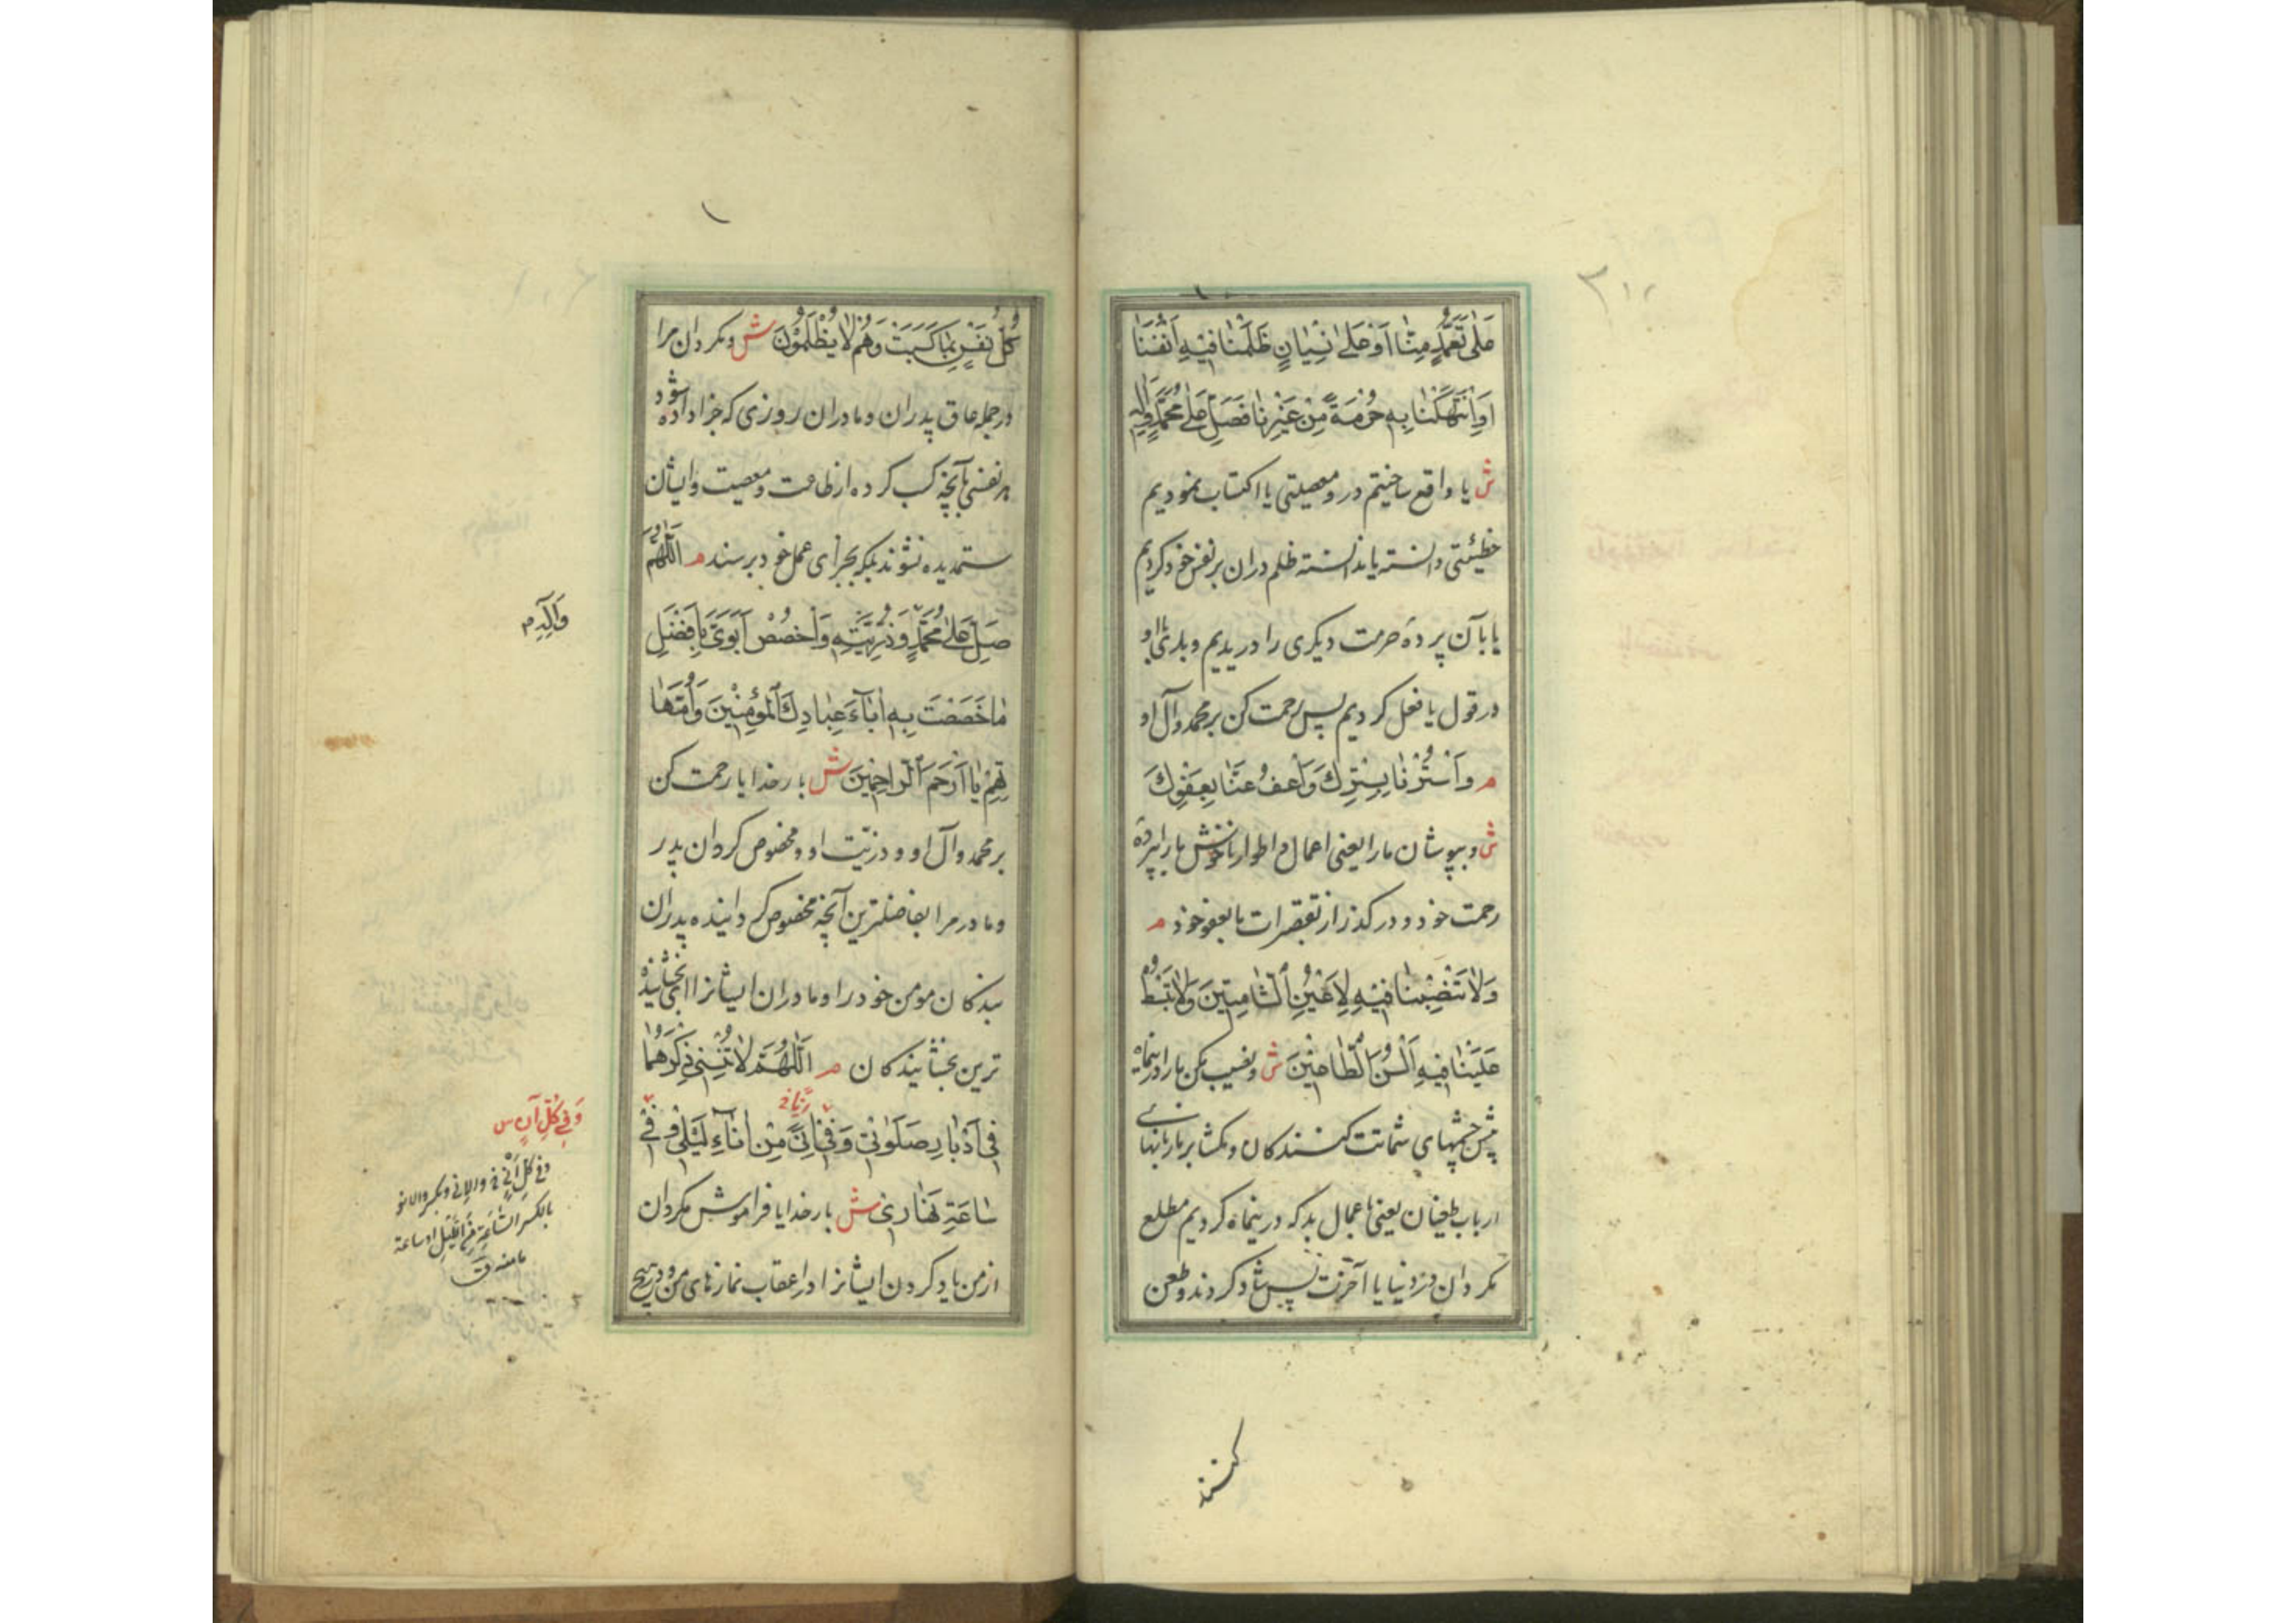 عَلٰى تَعَمُّدٍ مِنّٰا اَوْ عَلٰى نِسْيٰانٍ ظَلَمْنٰا فيٖهِ اَنْفُسَنٰا
اَوِانْتَهَكْنٰا بِهٖ حُرْمَةً مِنْ غَيْرِنٰا فَصَلِّ عَلٰى مُحَمَّدٍ وَاٰلِهٖ
ش یا واقع ساختیم در و معصیتی یا اکتساب نمودیم
خطیئتی دانسته یا ندانسته ظلم دران بر نفس خود کردیم
یا بآن پردهٔ حرمت دیگری را دریدیم و بدی با او
در قول یا فعل کردیم پس رحمت کن بر محمد و آل او
م وَاسْتُرْنٰا بِسِتْرِكَ وَاعْفُ عَنّٰا بِعَفْوِكَ
ش و بپوشان ما را یعنی اعمال و اطوار ناخوش ما را بپردهٔ
رحمت خود و در گذر از تقصیرات ما بعفو خود م
وَلاٰ تَنْصِبْنٰا فيٖهِ لِاَعْيُنِ الشّٰامِتيٖنَ وَلاٰ تَبْسُطْ
عَلَيْنٰا فيٖهِ اَلْسُنَ الطّٰاعِنيٖنَ ش و نصیب مکن ما را در اینماه
پیش چشمهای شماتت کنندکان و مکشا بر ما زبانهای
ارباب طغیان یعنی باعمال بد که در ینماه کردیم مطلع
مکردان در دنیا یا آخرت پس شاد کردند و طعن
کنند
كُلُّ نَفْسٍ بِمٰا كَسَبَتْ وَهُمْ لاٰ يُظْلَمُوْنَ ش و مکردان مرا
در جمله عاق پدران و مادران روزی که جزا داده شود
هر نفسی بآنچه کسب کرده از طاعت و معصیت و ایشان
ستمدیده نشوند بلکه بجزای عمل خود برسند م اَللّٰهُمَّ
صَلِّ عَلٰى مُحَمَّدٍ وَذُرِّيَّتِهٖ وَاخْصُصْ اَبَوَيَّ بِاَفْضَلِ
وَاٰلِهٖ م
مٰا خَصَصْتَ بِهٖ اٰبٰآءَ عِبٰادِكَ الْمُؤْمِنيٖنَ وَاُمَّهٰا
تِهِمْ يٰا اَرْحَمَ الرّٰاحِميٖنَ ش بار خدایا رحمت کن
بر محمد و آل او و ذریّت او و مخصوص کردان پدر
و مادر مرا بفاضلترین آنچه مخصوص کردانیده پدران
بندکان مومن خود را و مادران ایشانرا ای بخشاینده
ترین بخشایندکان م اَللّٰهُمَّ لاٰ تُنْسِنيٖ ذِكْرَهُمٰا
فيٖ اَدْبٰارِ صَلَوٰاتيٖ وَفيٖ اِنًى مِنْ اٰنٰآءِ لَيْليٖ وَفيٖ
وَفِي كُلِّ آنٍ س
سٰاعَةٍ نَهٰاريٖ ش بار خدایا فراموش مکردان
از من یاد کردن ایشانرا در اعقاب نمازهای من و در هیچ